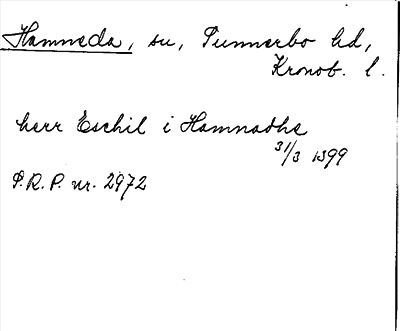 Hamneda, su, Sunnerbo hd,
Kronob. l.
herr Eschil i Hamnadhe
31/3 1399
S.R.P. nr. 2972